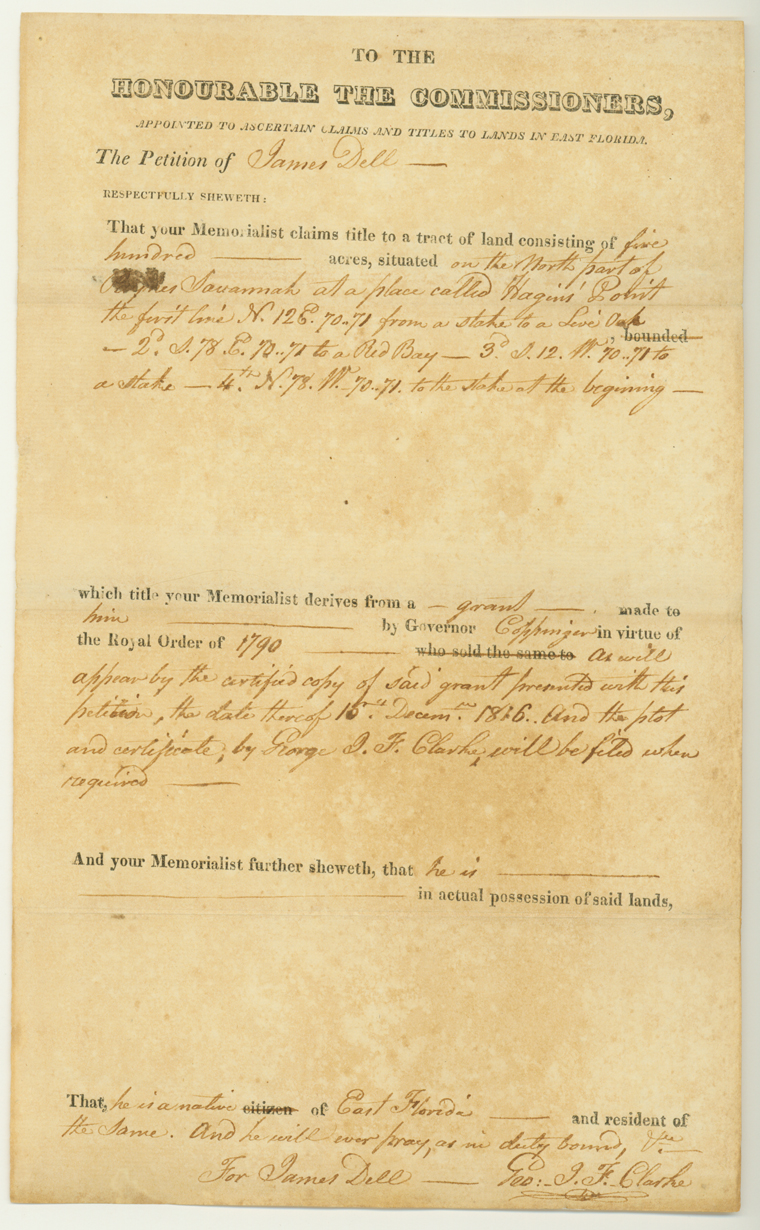 TO THE
HONOURABLE THE COMMISSIONERS,
APPOINTED TO ASCERTAIN CLAIMS AND TITLES TO LANDS IN EAST FLORIDA.
The Petition of James Dell —
RESPECTFULLY SHEWETH:
That your Memorialist claims title to a tract of land consisting of five
hundred — acres, situated on the North part of
Savannah at a place called Hagins' Point
the first line N. 12 E. 70..71 from a stake to a Live Oak
, bounded
— 2d. S. 78. E. 70..71 to a Red Bay — 3d. S. 12. W. 70..71 to
a stake — 4th. N. 78. W. 70..71. to the stake at the begining —
which title your Memorialist derives from a — grant — . made to
him — by Governor Coppinger in virtue of
the Royal Order of 1790 — who sold the same to As will
appear by the certified copy of said grant presented with this
petition, the date thereof Decemr. 1816. And the plot
and certificate, by George J. F. Clarke, will be filed when
required —
And your Memorialist further sheweth, that he is —
— in actual possession of said lands,
That, he is a native citizen of East Florida — and resident of
the Same. And he will ever pray, as in duty bound, &ca
For James Dell — Geo: J. F. Clarke